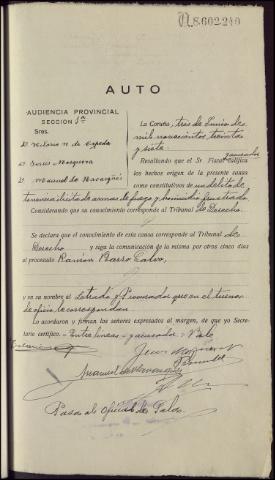 N.8.602.240
AUTO
AUDIENCIA PROVINCIAL
SECCION 1ª
Sres.
D. Hilario N de Cepeda
D. Jesus Marquera
D. Manuel
La Coruña, tres de Junio de
mil novecientos treinta
y siete.
Resultando que el Sr Fiscal califica
los hechos origen de la presente causa
como constitutivos de un delito de
tenencia ilicita armas de fuego y homicidio frustrado
Considerando que su conocimiento corresponde al Tribunal de Derecho.
Se declara que el conocimiento de esta causa corresponde al Tribunal de
Derecho y siga la comunicación de la misma por otros cinco días
al procesado Ramón Barro Calvo,
y en su nombre al Letrado y Procurador que en el turno
de oficio le correspondan
Lo acordaron y firman los señores expresados al margen, de que yo Secre-
tario certifico. - Entre lineas - - Vale
Pasa al Oficial de Sala.